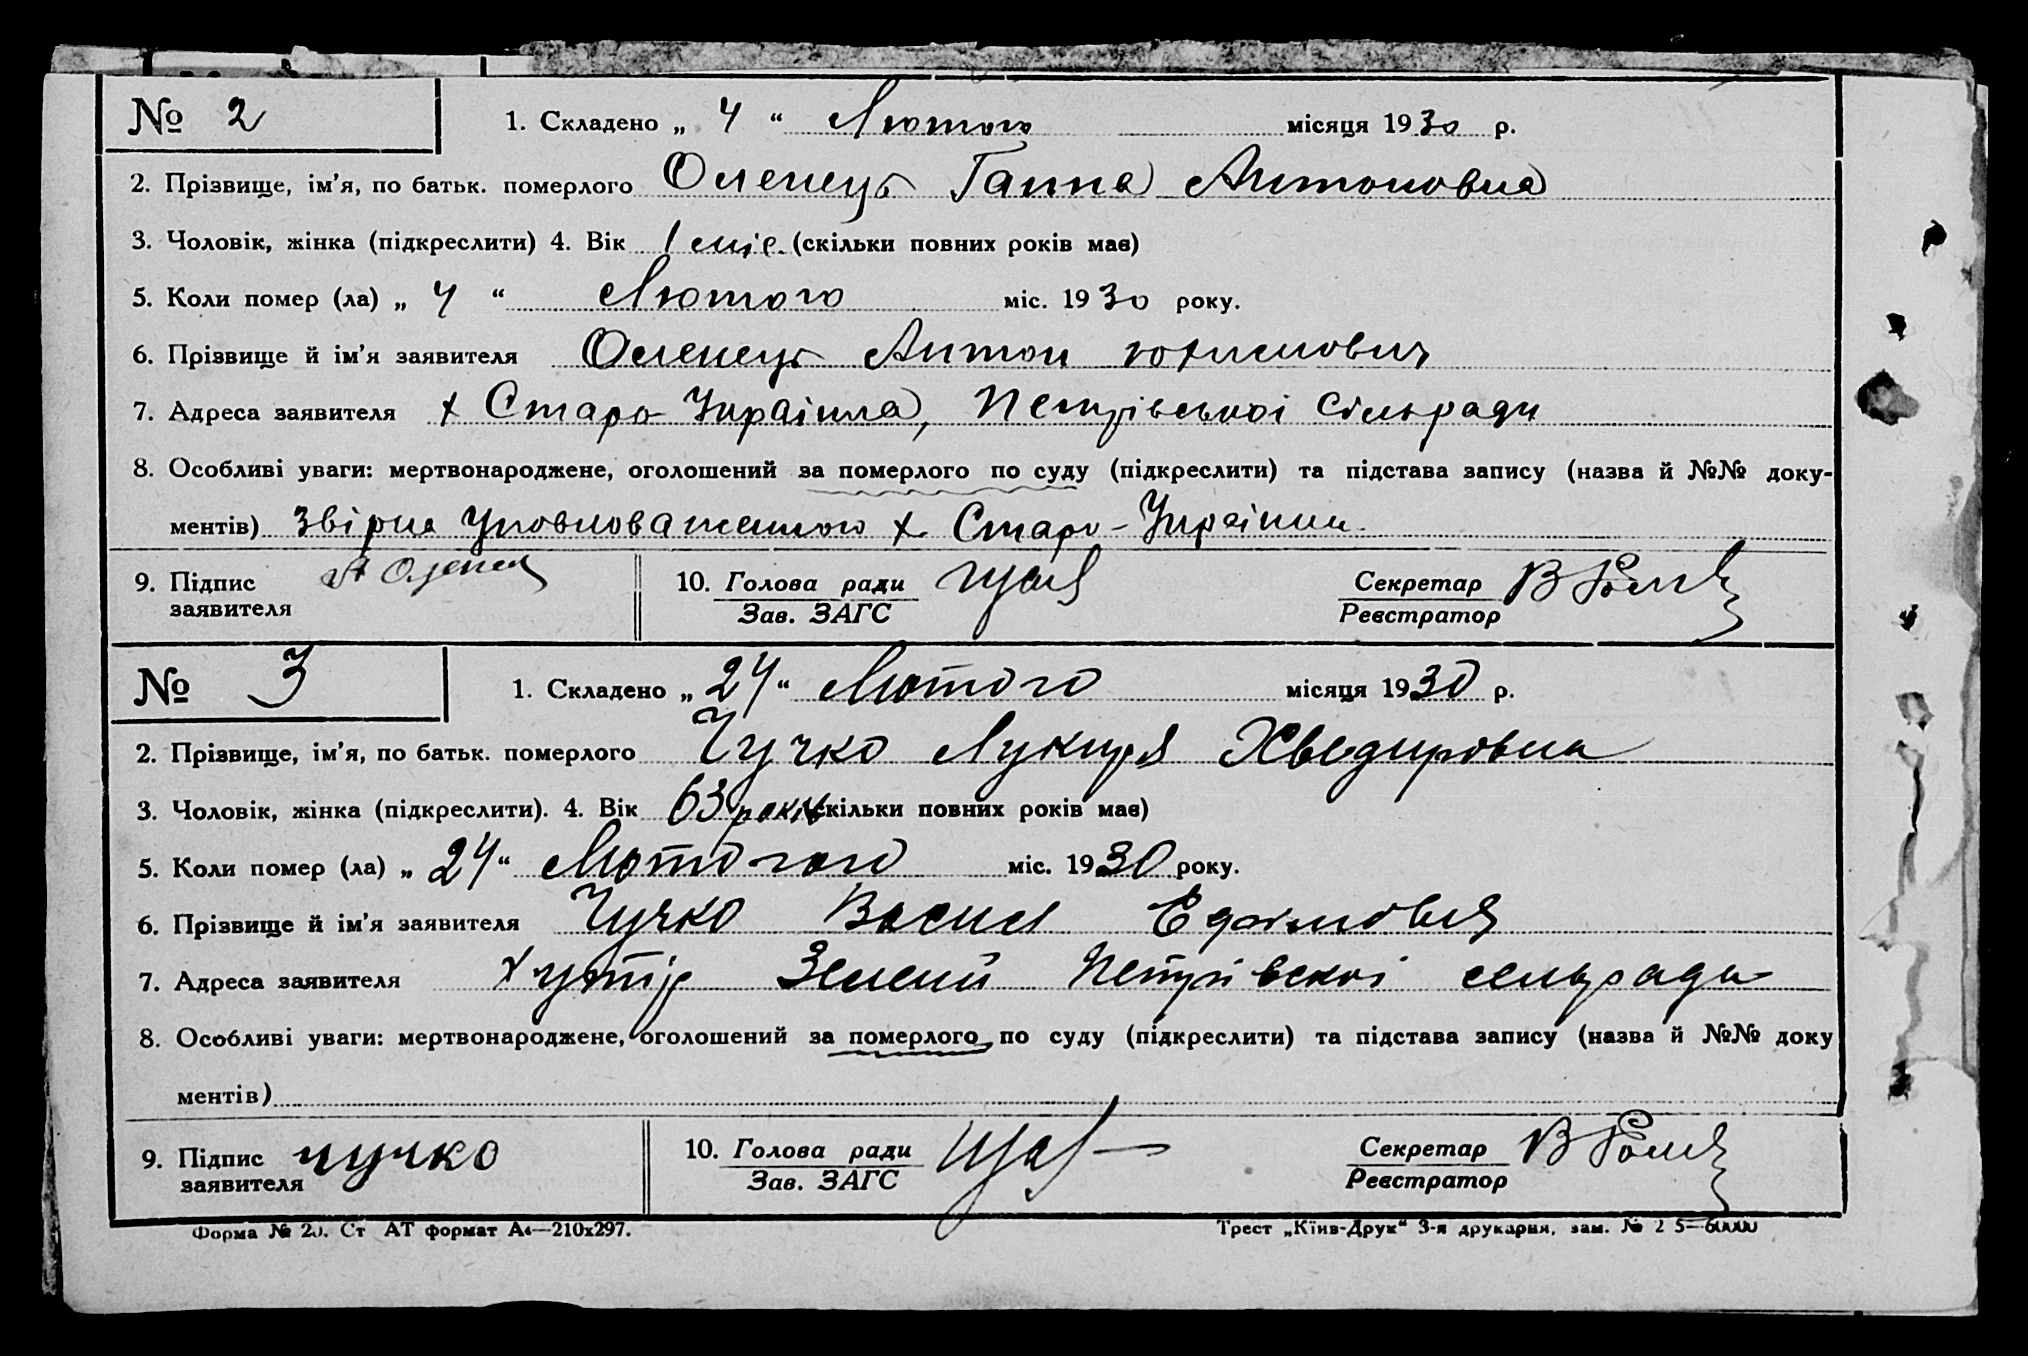 № 2 1. Складено „ 4 “ Лютого місяця 1930 р.
2. Прізвище, ім’я, по батьк. померлого Оленець Ганна Антоновна
3. Чоловік, жінка (підкреслити) 4. Вік 1 міс. (скільки повних років має)
5. Коли помер (ла) „ 4 “ Лютого міс. 1930 року.
6. Прізвище й ім’я заявителя Оленець Антон
7. Адреса заявителя х Старо-Украінка, Петрівськоі сільради
8. Особливі уваги: мертвонароджене, оголошений за померлого по суду (підкреслити) та підстава запису (назва й №№ доку-
ментів) Звірна Уповноваженого х Старо-Украінки
9. Підпис заявителя А Оленец 10. Голова ради Секретар
Зав. ЗАГС Реєстратор
№ 3 1. Складено „ 24 “ Лютого місяця 1930 р.
2. Прізвище, ім’я, по батьк. померлого Чучко Лукиря Хведировна
3. Чоловік, жінка (підкреслити). 4. Вік 63 роки (скільки повних років має)
5. Коли помер (ла) „ 24 “ міс. 1930 року.
6. Прізвище й ім’я заявителя Чучко Василь
7. Адреса заявителя хутір Зелений Петрівскоі сельради
8. Особливі уваги: мертвонароджене, оголошений за померлого по суду (підкреслити) та підстава запису (назва й №№ доку
ментів)
9. Підпис заявителя чучко 10. Голова ради Секретар
Зав. ЗАГС Реєстратор
Форма № 20. Ст АТ формат А4—210х297. Трест „Київ-Друк“ 3-я друкарня, зам. №